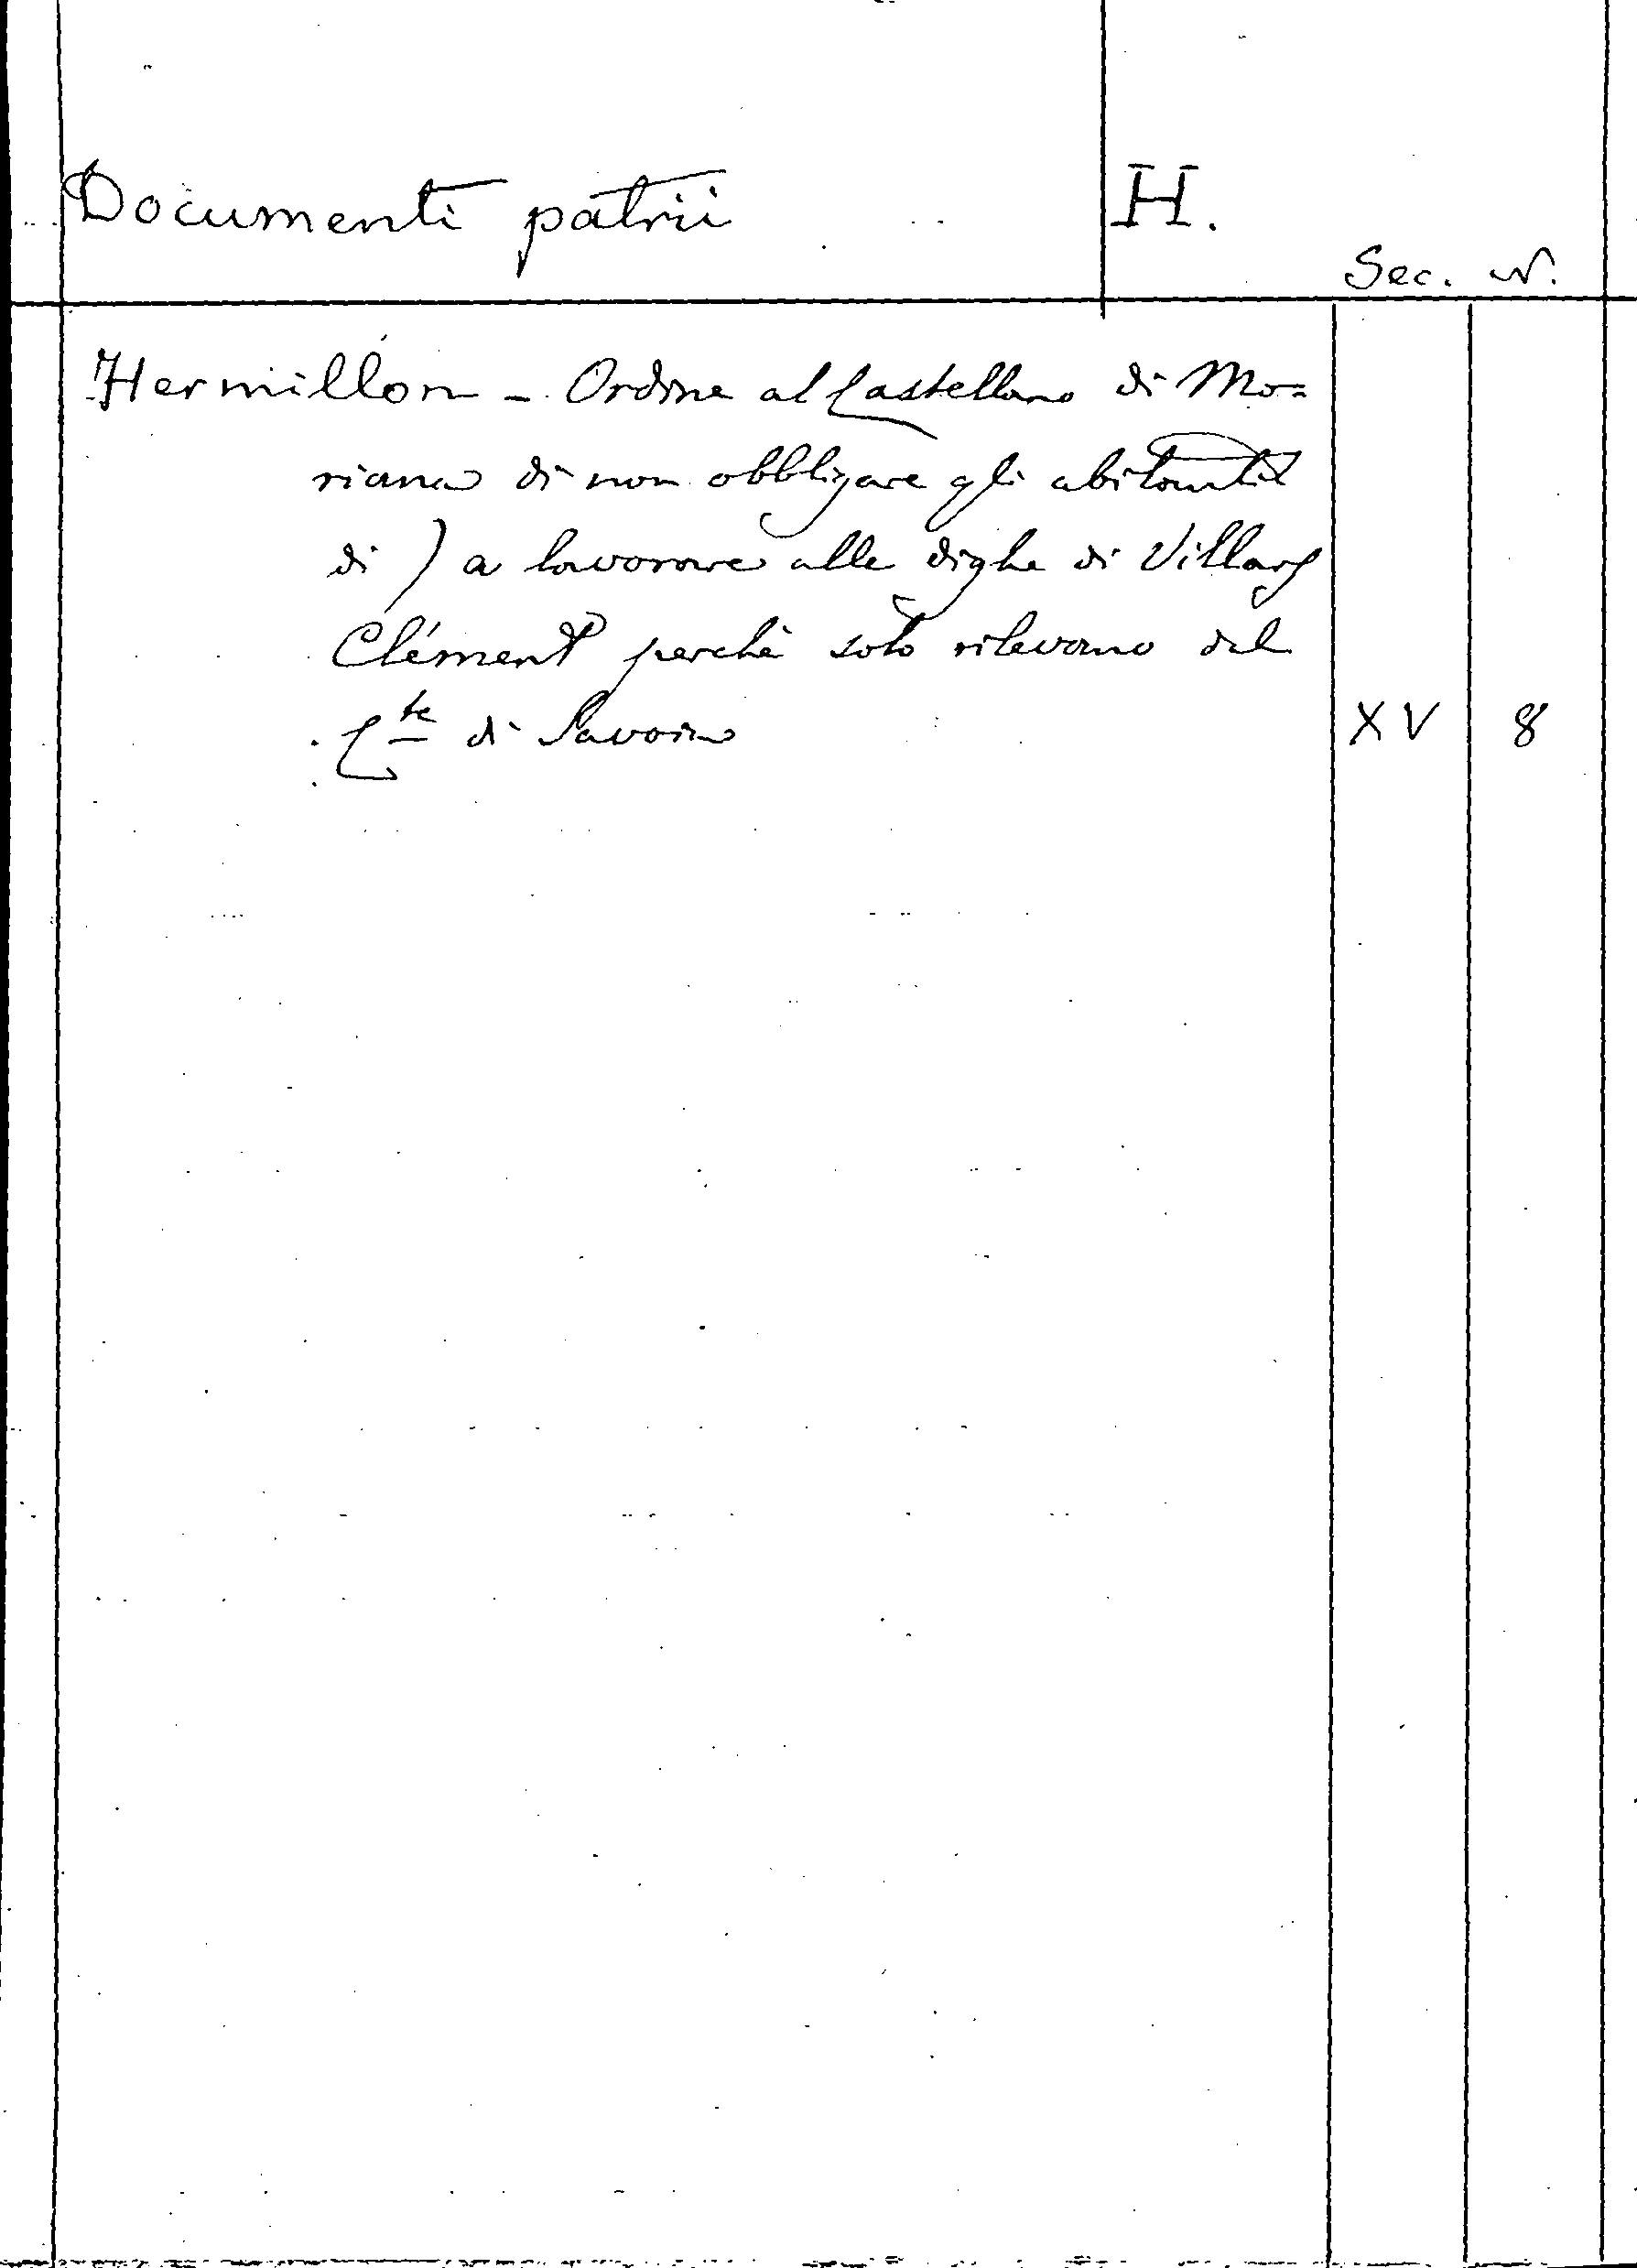 Documenti patrii
H.
Sec. N.
Hermillon - Ordine al Castellano di Mo=
riana di non obbligare gli abitanti
di ) a lavorare alle dighe di Villary
Clément perchè solo rilevano del
C.te di Savoia XV 8